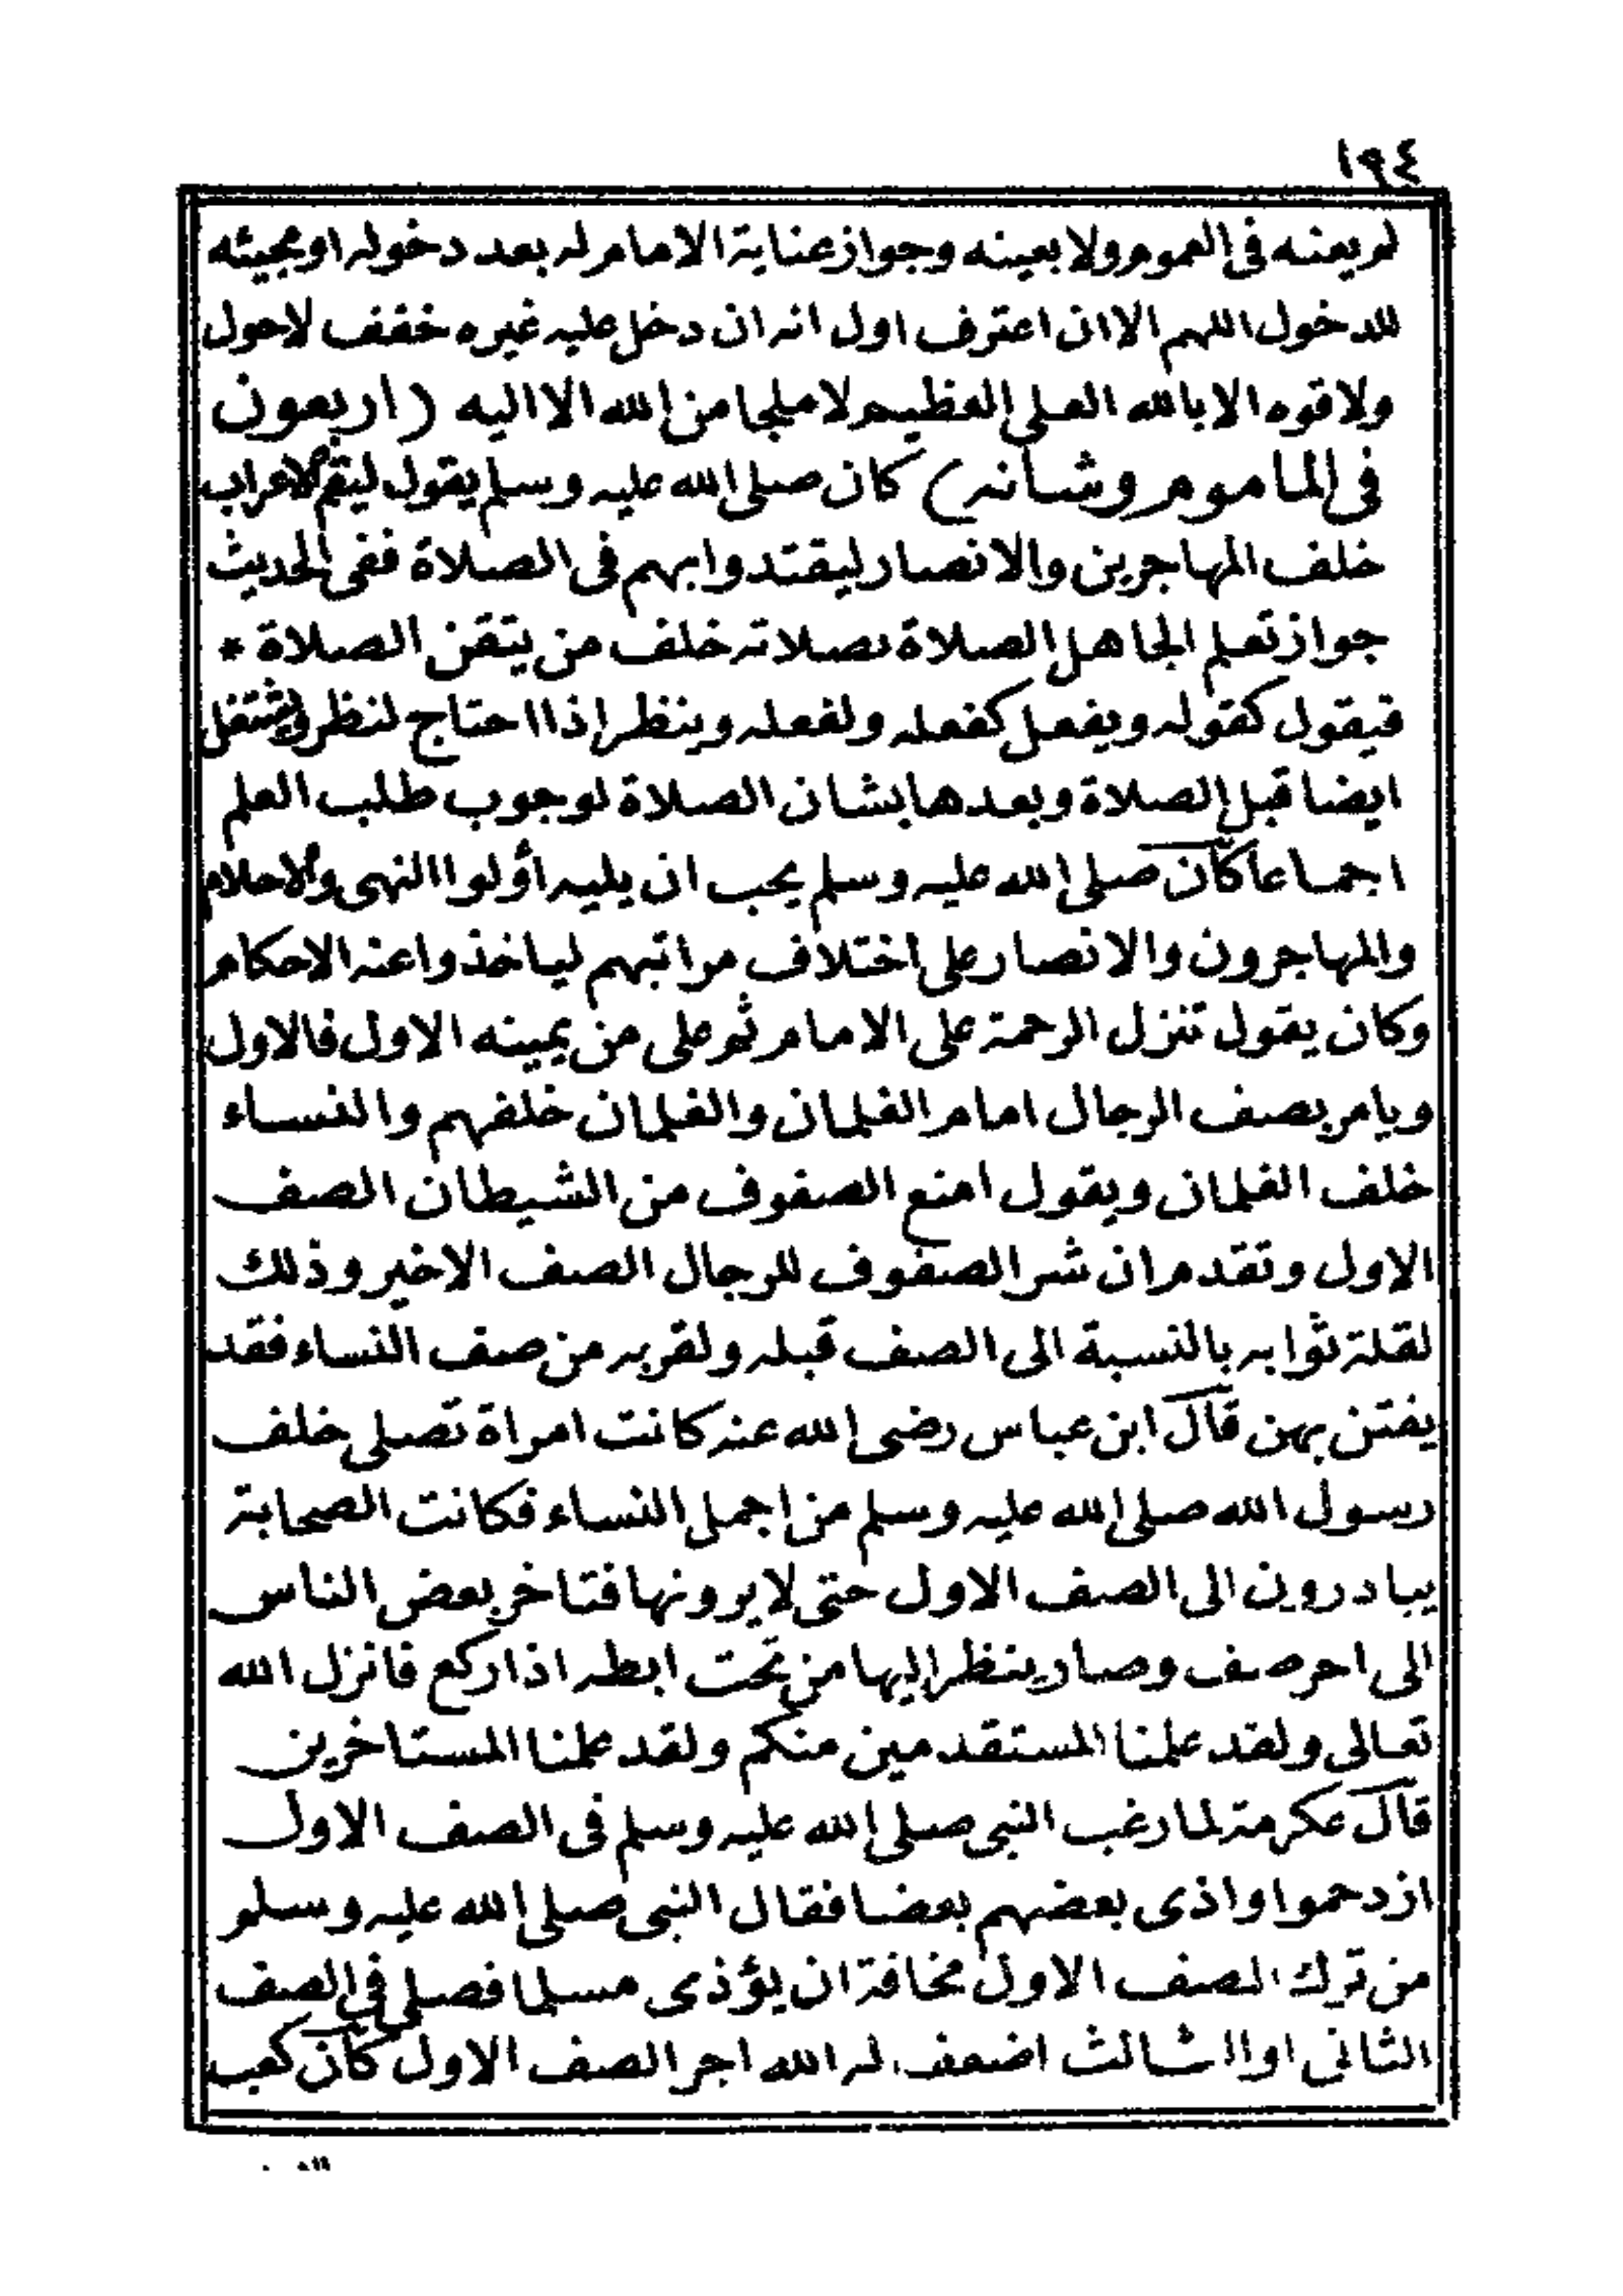 ١٩٤
لم يعنه فى العموم ولا بعينه وجواز عناية الامام له بعد دخوله او مجيئه
للدخول اللهم الا ان اعترف اول انه ان دخل عليه غيره خفف لا حول
ولا قوه الا بالله العلى العظيم لا ملجا من الله الا اليه (اربعون
فى الماموم وشانه) كان صلى الله عليه وسلم يقول ليقم الاعراب
خلف المهاجرين والانصار ليقتدوا بهم فى الصلاة ففى الحديث
جواز تعلم الجاهل الصلاة بصلاته خلف من يتقن الصلاة *
فيقول كقوله ويفعل كفعله ولفعله وينظر اذا احتاج لنظر ويشتغل
ايضا قبل الصلاة وبعدها بشان الصلاة لوجوب طلب العلم
اجماعا كان صلى الله عليه وسلم يحب ان يليه أولوا النهى والاحلام
والمهاجرون والانصار على اختلاف مراتبهم لياخذوا عنه الاحكام
وكان يقول تنزل الرحمة على الامام ثم على من يمينه الاول فالاول
ويامر بصف الرجال امام الغلمان والغلمان خلفهم والنساء
خلف الغلمان ويقول امنع الصفوف من الشيطان الصف
الاول وتقدم ان شر الصفوف للرجال الصف الاخير وذلك
لقلة ثوابه بالنسبة الى الصف قبله ولقربه من صف النساء فقد
يفتن بهن قال ابن عباس رضى الله عنه كانت امراة تصلى خلف
رسول الله صلى الله عليه وسلم من اجمل النساء فكانت الصحابة
يبادروين الى الصف الاول حتى لا يرونها فتاخر بعض الناس
الى احر صف وصار ينظر اليها من تحت ابطه اذا ركع فانزل الله
تعالى ولقد علمنا المستقدمين منكم ولقد علمنا المستاخرين
قال عكرمة لما رغب النبى صلى الله عليه وسلم فى الصف الاول
ازدحموا واذى بعضهم بعضا فقال النبى صلى الله عليه وسلم
من ترك الصف الاول مخافة ان يؤذى مسلما فصلى فى الصف
الثانى او الثالث اضعف له الله اجر الصف الاول كان كعب